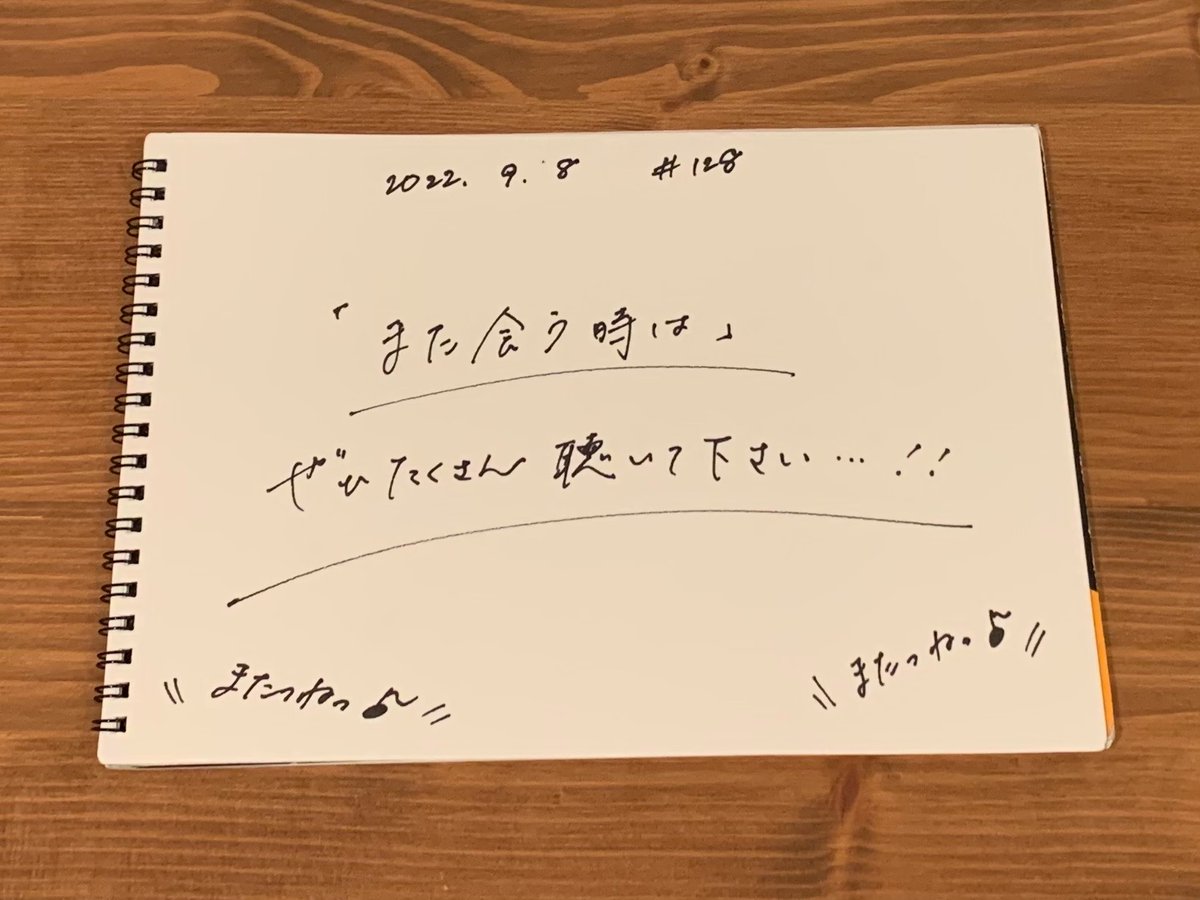 2022. 9. 8 #128
「また会う時は」
ぜひたくさん聴いて下さい…!!
またっねっ♪
またっねっ♪